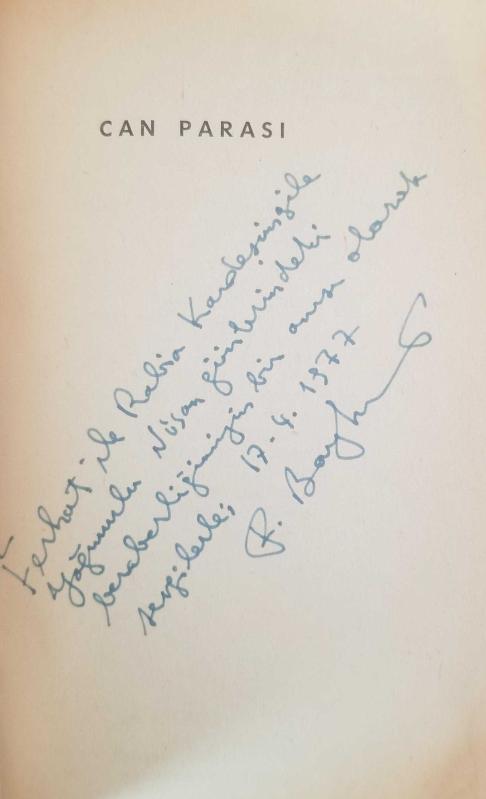 CAN PARASI
Ferhat ile Rabia Kardeşimizle
yağmurlu Nisan günlerindeki
beraberliğimizin bir anısı olarak
sevgilerle, 17.4.1977
F. Baykurt